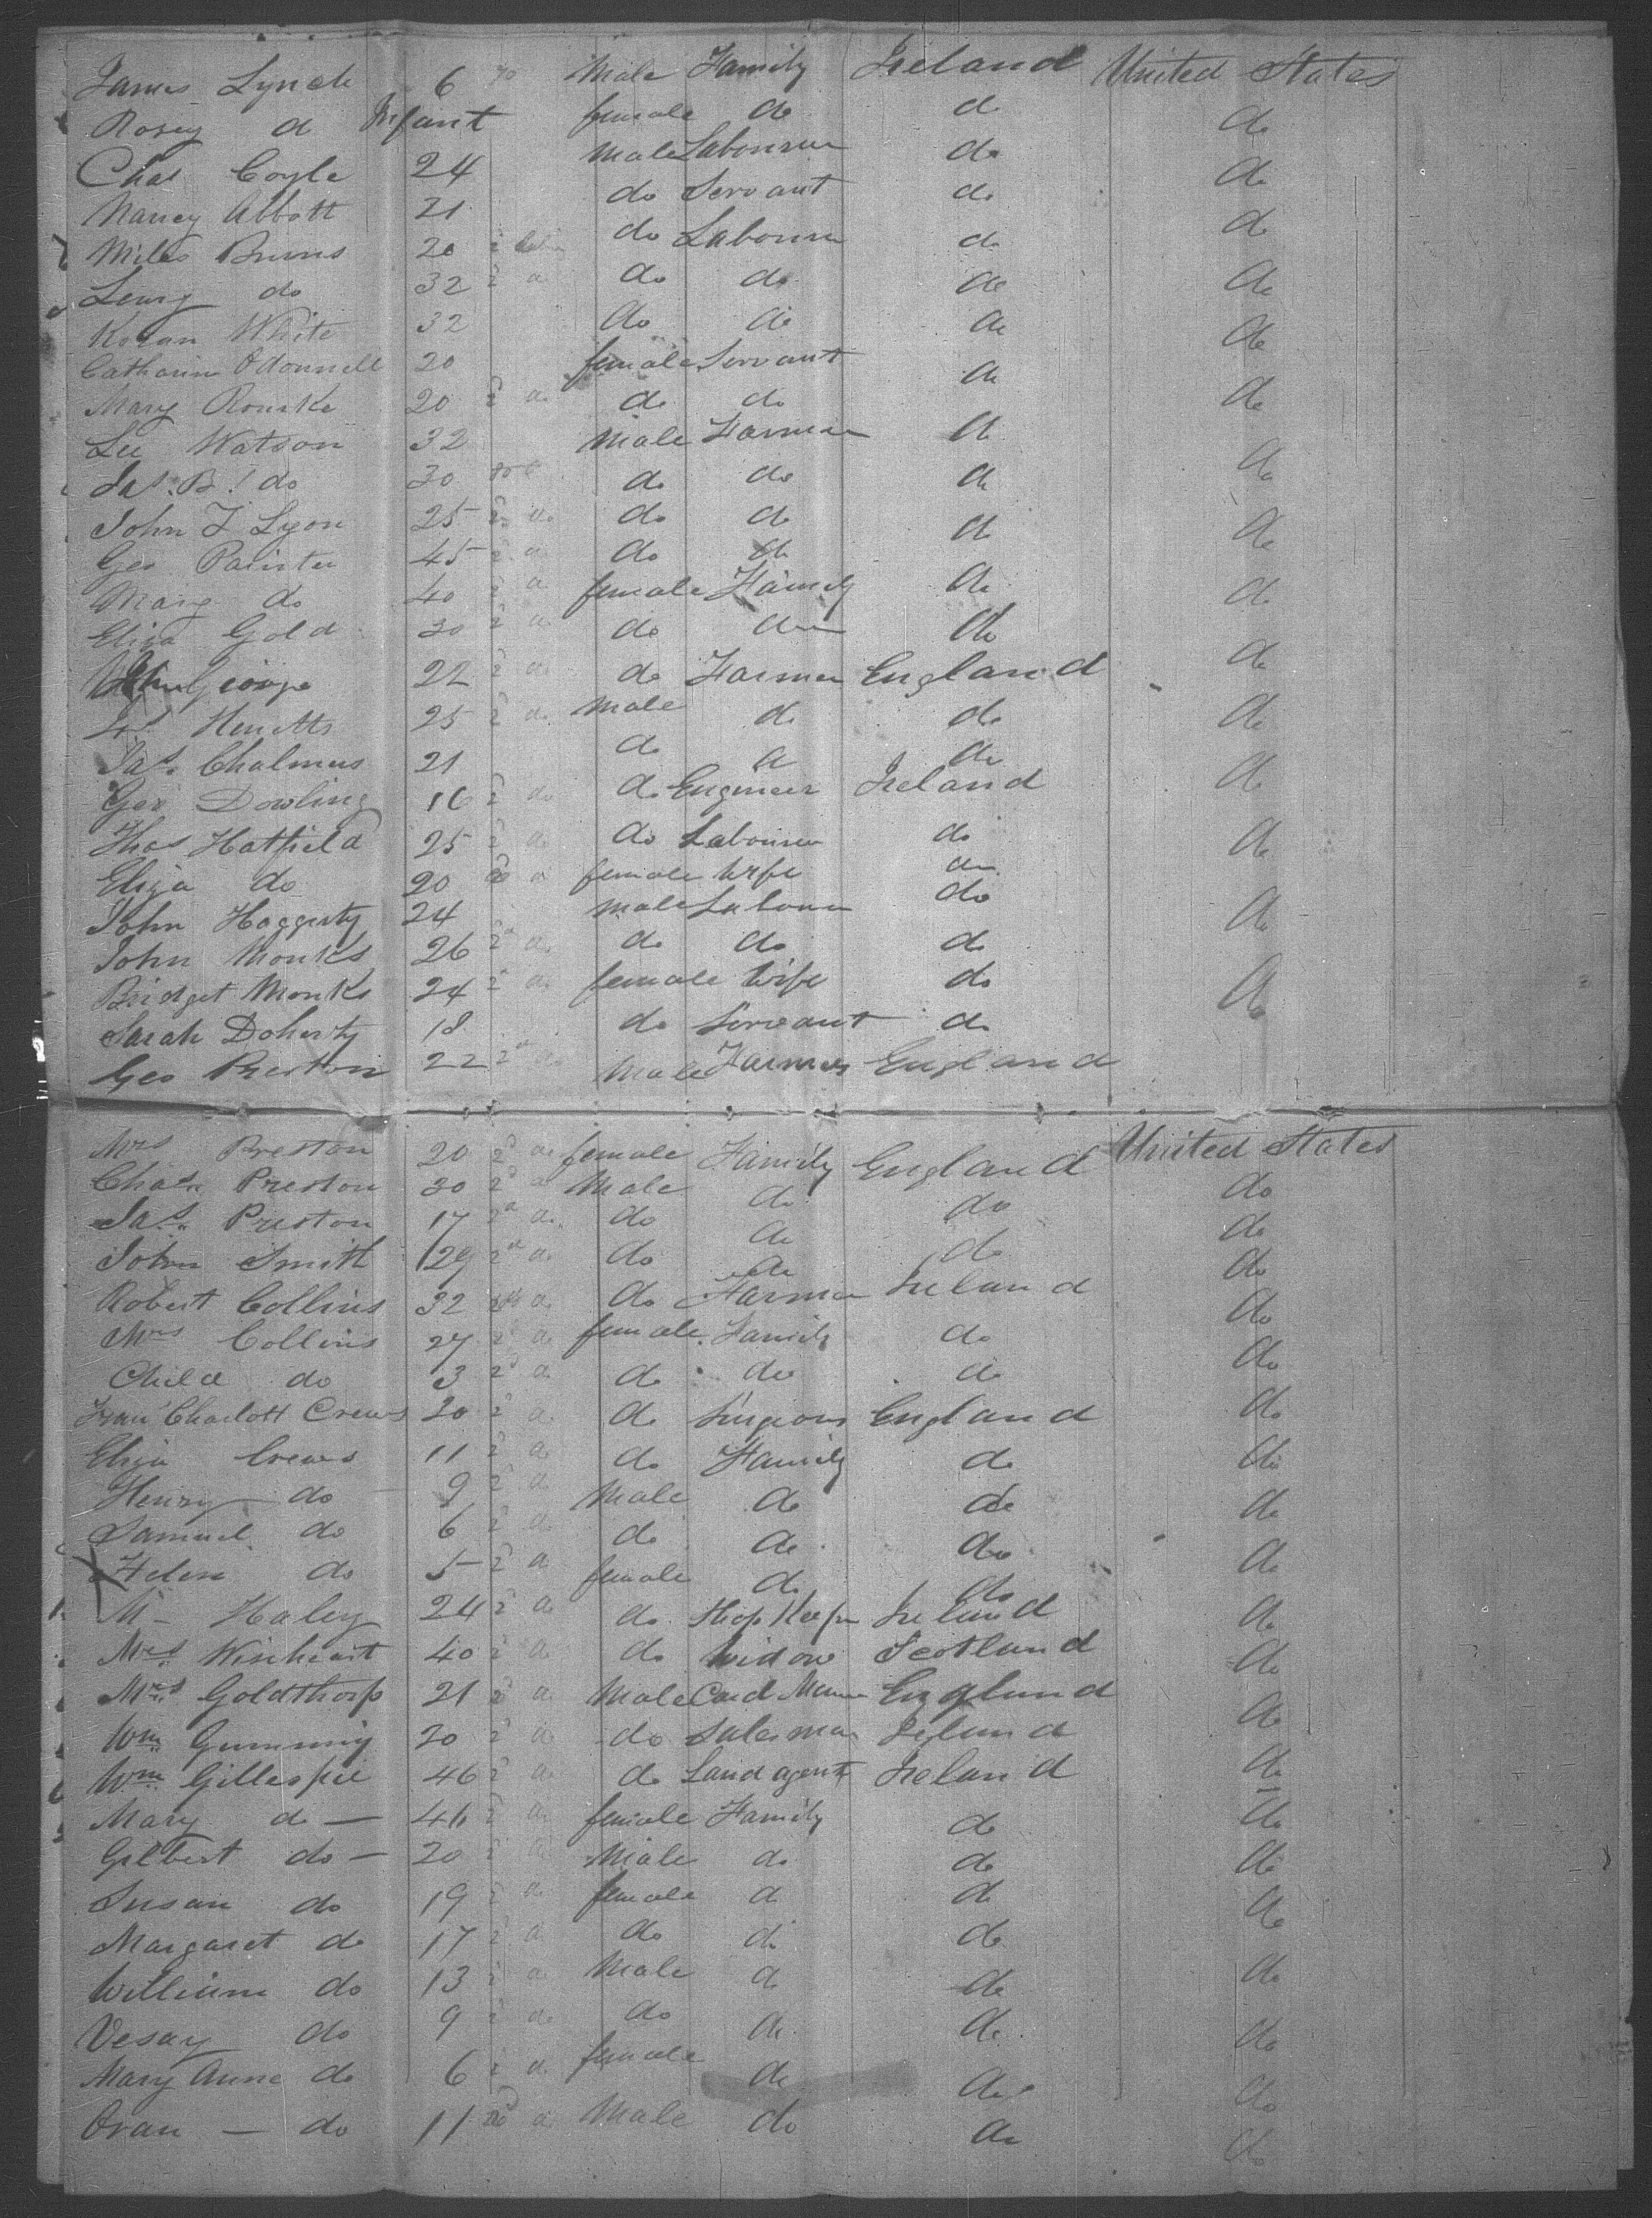 James Lynch 6 Male Family Ireland United States
Rosey d Infant female do d do
Chas Coyle 24 Male Labourer do do
Nancy Abbott 21 do Servant do do
Miles Burns 20 do Labourer do do
do 32 2d do do do do
White 32 do do do do
Catharine O'Donnell 20 female Servant do do
Mary Rourke 20 2d do do do do
Lee Watson 32 Male Farmer do do
Jas. B. do 30 do do do do
John T Lyon 25 2d do do do do do
Geo Painter 45 2d do do do do
Mary do 40 2d female Family do do
Eliza Gold 30 2d do do do do
George 22 2d do do Farmer England do
25 2d do Male do do do
Jas. Chalmers 21 do do do do
Geo Dowling 16 2d do do Engineer Ireland do
Thos Hatfield 25 2d do do Labourer do do
Eliza do 20 female Wife do
John Haggerty 24 Male Labourer do do
John Monks 26 2d do do do do
Bridget Monks 24 2d do female Wife do do
Sarah Doherty 18 do Servant do
Geo Preston 22 2d do Male Farmer England
Mrs Preston 20 2d do female Family England United States
Chas Preston 30 2d do Male do do do
Jas. Preston 17 2d do do do do
John Smith 29 2d do do do do do
Robert Collins 32 do do Farmer Ireland do
Mrs Collins 27 2d do female Family do do
Child do 3 2d do do do do do
Charlott Crews 30 2d do do England do
Eliza Crews 11 2d do do Family do do
Henry do 9 2d do Male do do do
Samuel do 6 2d do do do do do
Helen do 5 2d do female do do do
M - Haley 24 2d do do Shop Keeper Ireland do
Mrs Wiseheart 40 2d do do Widow Scotland do
Mrs Goldthorp 21 2d do Male England do
Wm Gumming 30 2d do do Salesman do
Wm Gillespie 46 2d do do Land agent Ireland do
Mary do - 46 2d do female Family do do
Gilbert do - 20 2d do Male do do do
Susan do 19 2d do female do do do
Margaret do 17 2d do do do do
William do 13 2d do Male do do do
Vesay do 9 2d do do do do do
Mary Anne do 6 2d do female do do do
Oran - do 11 2d do Male do do do